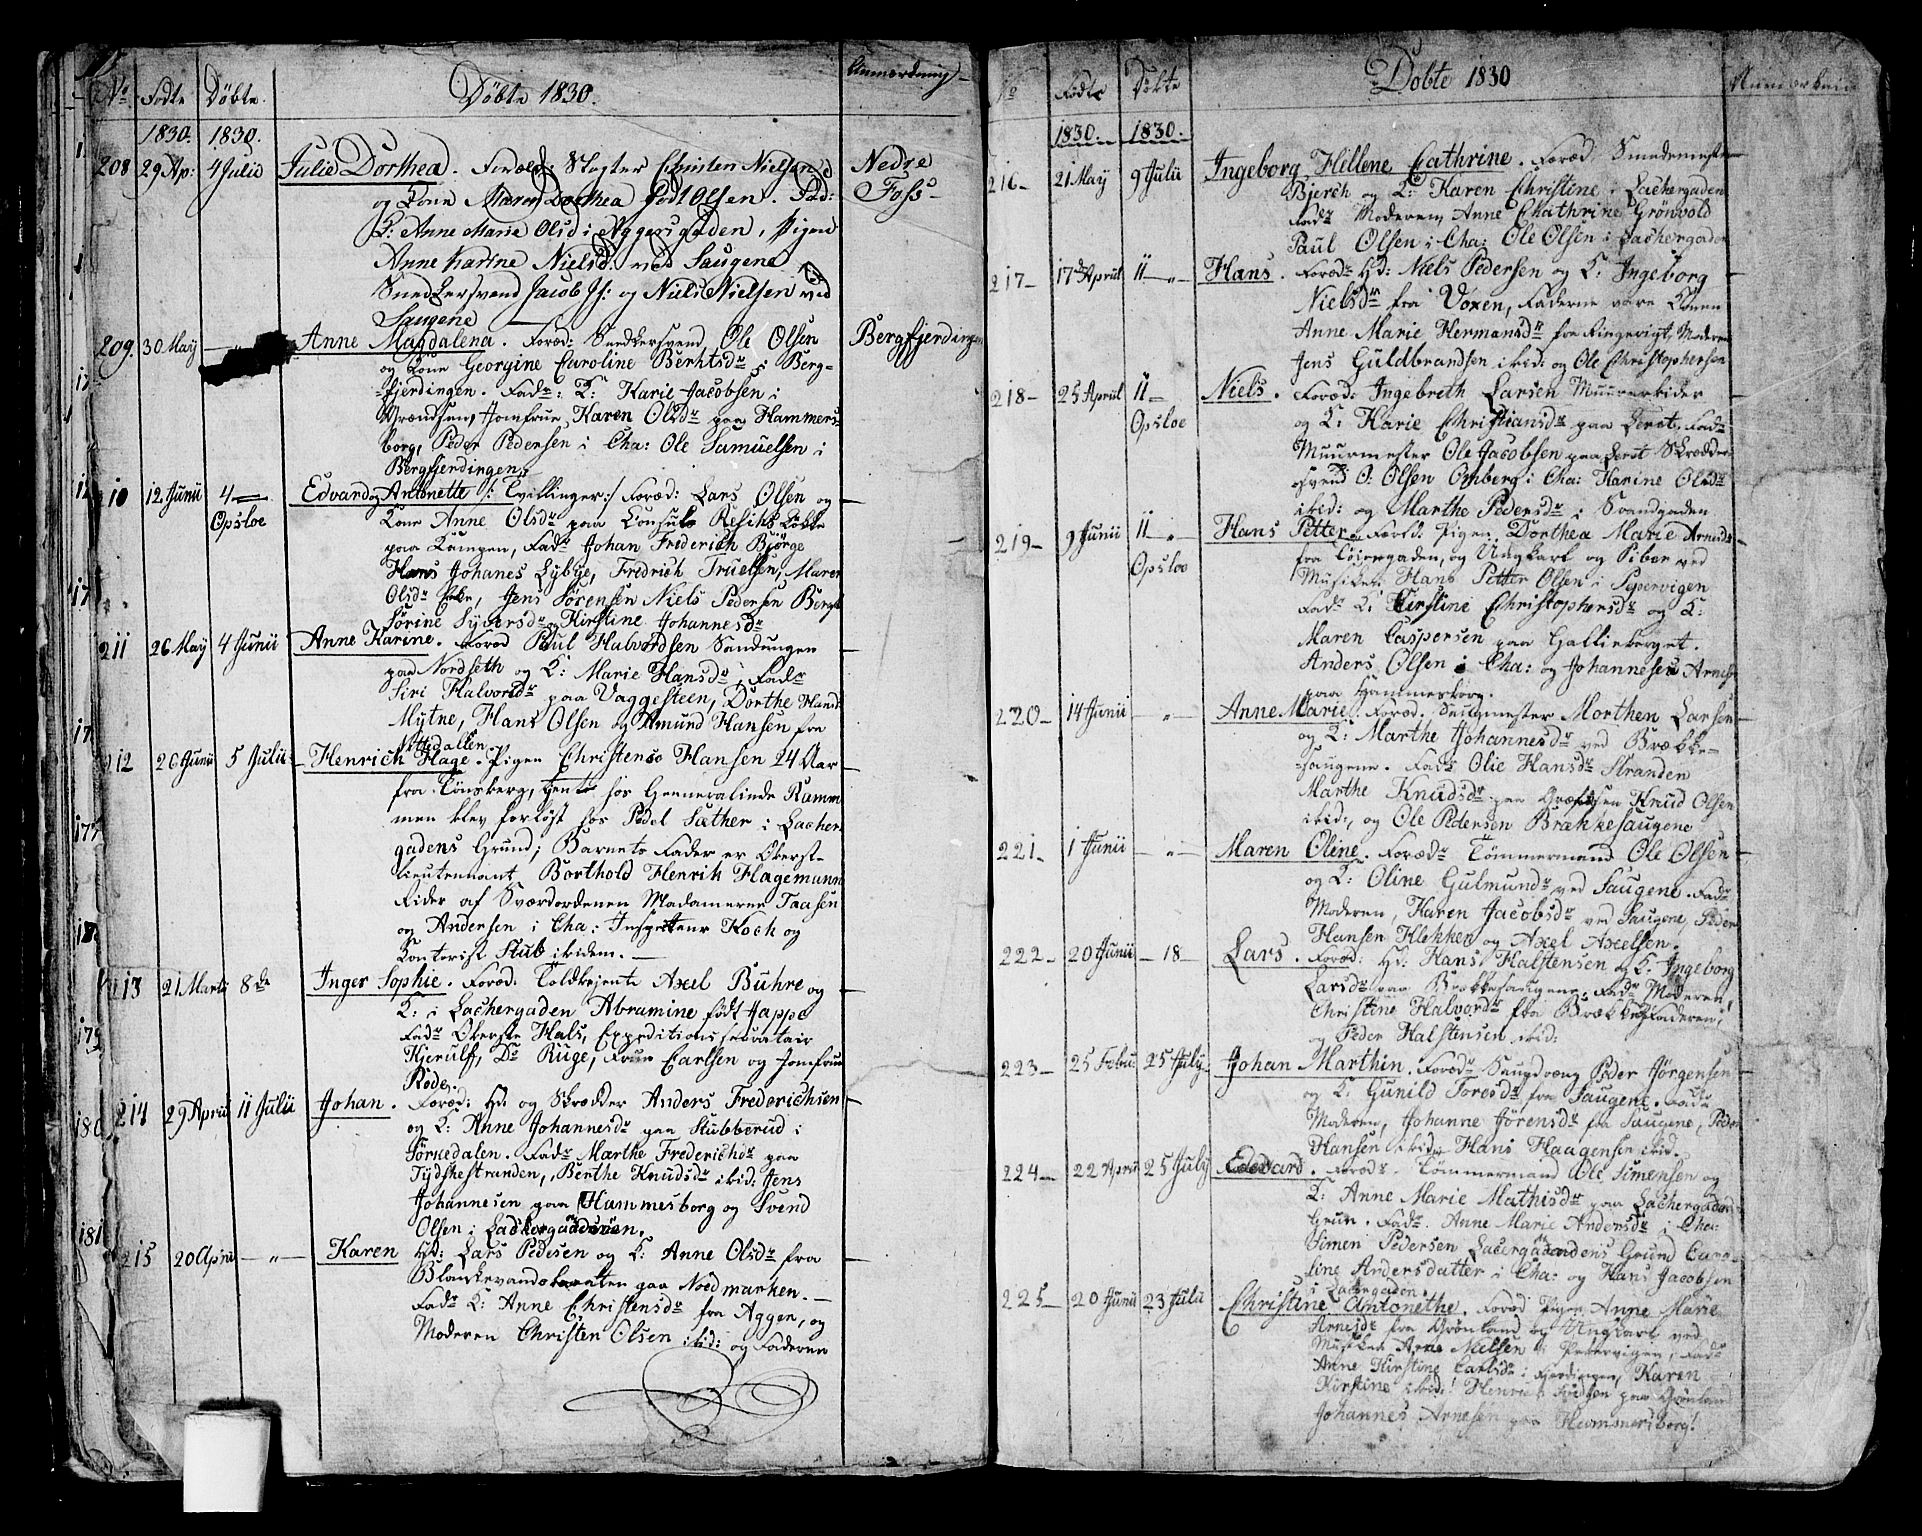 No Fødte Døbte. Döbte 1830. Anmærkning
1830. 1830.
208 29 Ap: 4 Julii Julie Dorthea. Foræld: Slagter Christen Nielsen Nedre
og Kone Maren Dorthea født Olsen. Fad: Foss
K: Anne Marie Olsd i Aggersgaden, Pigen
Anne Karine Nielsd: ved Saugene
Snedkersvend Jacob Js: og Niels Nielsen ved
Saugene
209. 30 May Anne Magdalena. Foræd: Snedkersvend Ole Olsen Bergfjerdingen
og Kone Georgine Caroline Berntsdr i Berg-
fjerdingen. Fadr: K: Karie Jacobsen i
Grændsen, Jomfrue Karen Olsdr paa Hammers-
borg, Peder Pedersen i Cha: Ole Samuelsen i
Bergfjerdingen
210 12 Junii 4 Edvard og Antonette /: Tvillinger :/ Foræd: Lars Olsen og
Opsloe Kone Anne Olsdr paa Consul Løkke
paa Tungen, Fadr Johan Frederich Bjørge
Hans Johanes Lybye, Fredrich Truelsen, Maren
Olsdr Jens Sørensen Niels Pedersen Bergf
Sørine Syversdr og Kirstine Johannesdr
211 26 May 4 Junii Anne Karine. Foræd Paul Halvordsen Sandungen
paa Nordseth og K: Marie Hansdr, Fadr
Siri Halvorsdr paa Vaggesteen, Dorthe Hansd
Mytne, Hans Olsen og Amund Hansen fra
Nittedallen
212 26 Junii 5 Julii Henrich Hage. Pigen Christense Hansen 24 Aar
fra Tönsberg, tjente hos Generalinde Ramm
men blev forløst hos Pedel Sæther i Lacher
gadens Grund; Barnets Fader er Oberst-
lieutennant Borthold Henrik Hagemann
Rider af Sværdordenen Madamerne Taasen
og Andersen i Cha: Inspecteur Koch og
Contorist Stub ibidem.
213 21 Marti 8de Inger Sophie. Foræd: Toldbetjente Axel Buhre og
K: i Lachergaden Abramine født Jappe
Fadr Oberste Hals, Expeditionssecretair
Kjerulf, Do Ruge, Frue Carlsen og Jomfrue
Rode.
214 29 April 11 Julii Johan. Foræd: Hd: og Skrædder Anders Frederichsen
og K: Anne Johannesdr paa Stubberud i
Sørkedalen. Fadr Marthe Frederichsdr paa
Tydskestranden, Benthe Knudsdr ibid: Jens
Johannesen paa Hammersborg og Svend
Olsen i Lachergaden.
215 20 April Karen Hd: Lars Pedersen og K: Anne Olsdr fra
Blankevandsbraaten paa Nordmarken.
Fadr K: Anne Christensdr fra Aggen, og
Moderen Christen Olsen ibid: og Faderen
No Fødte Døbte Döbte 1830 Anmærkning
1830. 1830.
216 21 May 9 Julii Ingeborg Hellene Cathrine. Foræd Smedemester
Bjerch og K: Karen Christine i Lachergaden
Fadr Moderen Anne Chathrine Grönvold
Paul Olsen i Cha: Ole Olsen i Lachergaden
217 17de April 11 Hans. Forædr Hd: Niels Pedersen og K: Ingeborg
Nielsdr fra Voxen, Faderne vare Konen
Anne Marie Hermansdr fra Ringerigt, Moderen
Jens Guldbrandsen ibid: og Ole Christophersen
218 25 April 11 Niels. Foræd: Ingebreth Larsen Muurarbider
Opsloe og K: Karie Christiansdr paa Fadr
Muurmester Ole Jacobsen paa Skrædder-
svend O: Olsen Omberg i Cha: Karine Olsdr
ibid: og Marthe Pedersdr i Svandgaden
219 9 Junii 11 Hans Petter Foræld: Pigen Dorthea Marie Arnesdr
Opsloe fra Töiergaden, og Ungkarl og Piber ved
Musiken Hans Petter Olsen i Pepervigen
Fadr K: Kirstine Christophersdr og K:
Maren Caspersen paa Galliebierget.
Anders Olsen i Cha: og Johannesen Arnesen
paa Hammersborg.
220 14 Junii Anne Marie. Foræd. Saugmester Morthen Larsen
og K: Marthe Johannesdr ved Brække-
saugene. Fadr Olie Hansdr Stranden
Marthe Knudsdr paa Grændsen Knud Olsen
ibid:, og Ole Pedersen Brækkesaugene
221 1 Junii Maren Oline. Forædr Tömmermand Ole Olsen
og K: Oline Gulmundr ved Saugene. Fadr
Moderen, Karen Jacobsdr ved Saugene, Peder
Hansen Klekken og Axel Axelsen.
222 20 Junii 18 Lars. Foræd: Hd: Hans Halstensen og K. Ingeborg
Larsdr paa Brækkesaugene, Fadr Moderen,
Christine Halvordr fra Brække Faderen,
og Peder Halstensen ibid:
223 25 Febru 25 July Johan Marthin. Forædr Saugdreng Peder Jörgensen
og K: Gunild Toresdr fra Saugene. Fadr
Moderen, Johanne Jörensdr fra Saugene, Peder
Hansen ibid: Hans Haagensen ibid.
224 22 April 25 July Edevard. Forædr. Tömmermand Ole Simensen og
K: Anne Marie Mathisdr paa Lachergadens
Grun. Fadr. Anne Marie Andersdr i Cha:
Simen Pedersen Lachergadens Grund Caro-
line Andersdatter i Cha: og Hans Jacobsen
i Lachergaden.
225 20 Junii 23 Julii Christine Antonethe. Foræd Pigen Anne Marie
Arnesdr fra Grönland og Ungkarl ved
Musiken Arne Nielsen i Pepervigen, Fadr
Anne Kirstine Carlsdr i Fjerdingen, Karen
Kirstine ibid! Henrik paa Grönland
Johannes Arnesen paa Hammersborg!